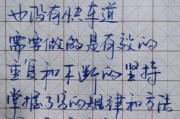 也没有快车道
需要做的是有效的
重复和不断的坚持
掌握学习的规律和方法